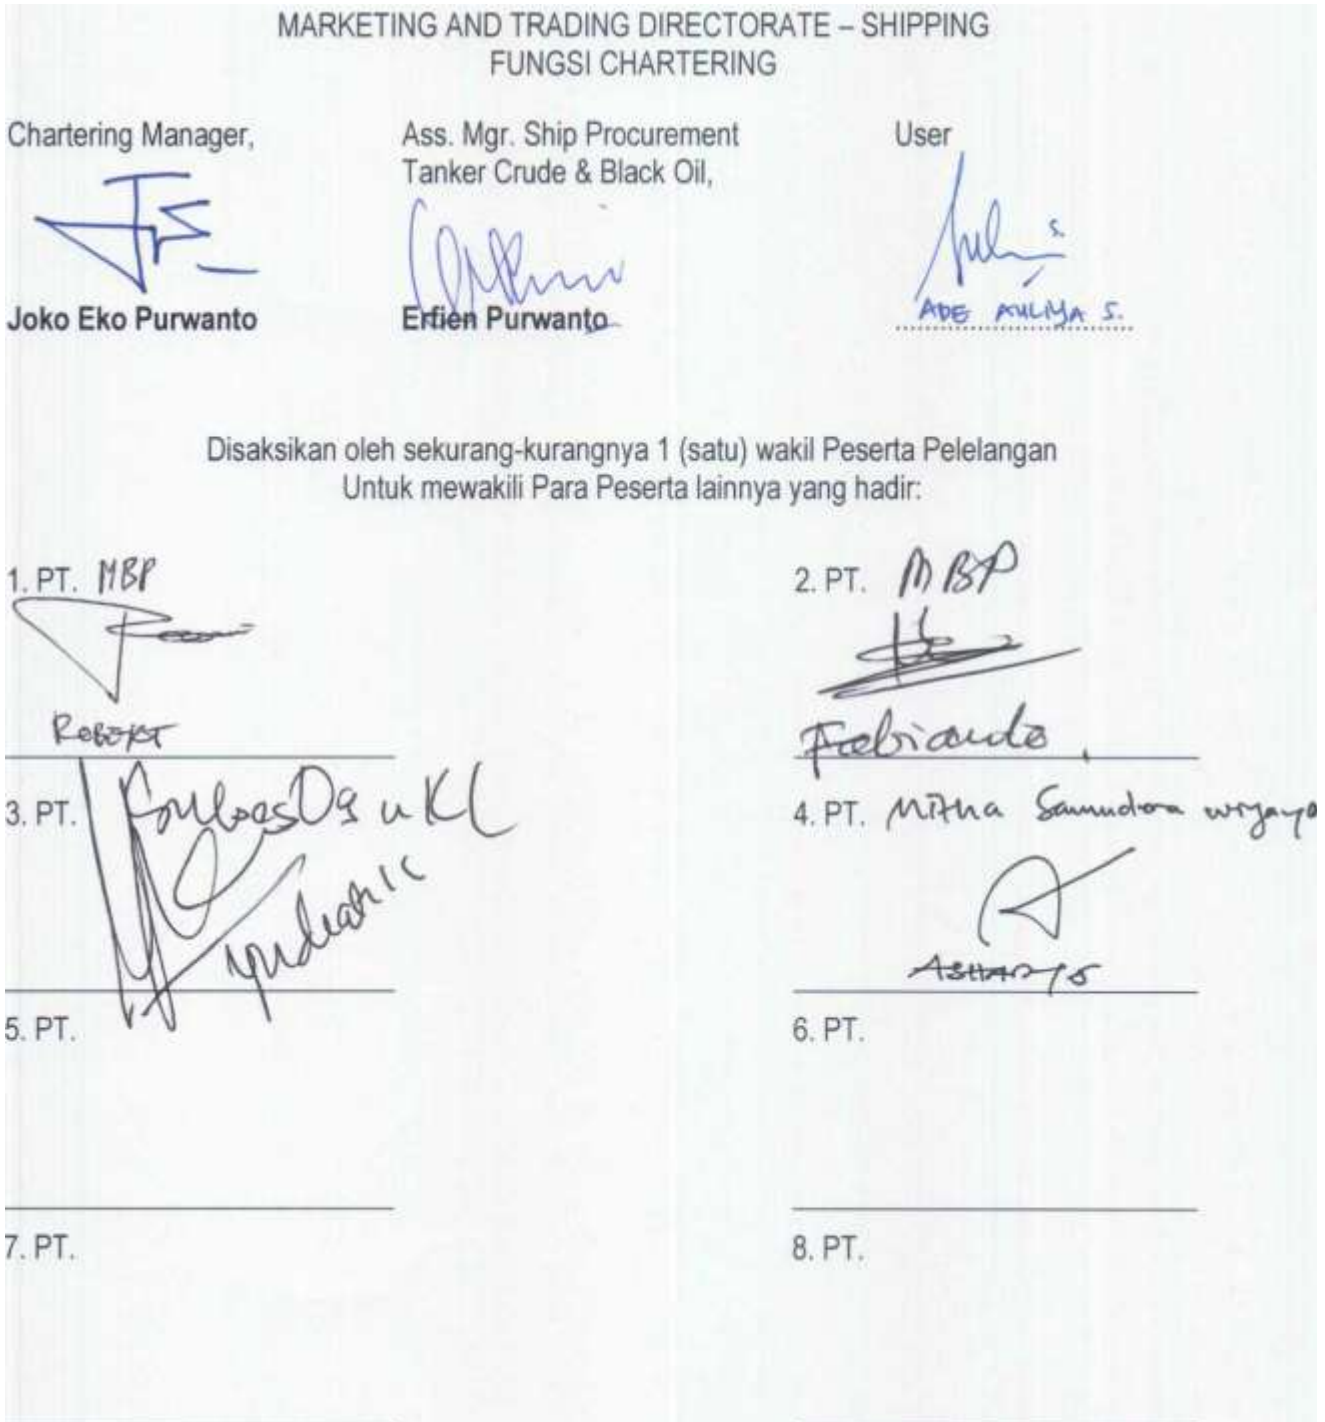 MARKETING AND TRADING DIRECTORATE – SHIPPING
FUNGSI CHARTERING
Chartering Manager,
Ass. Mgr. Ship Procurement
Tanker Crude & Black Oil,
User
Joko Eko Purwanto
Erfien Purwanto
ADE AULIYA S.
Disaksikan oleh sekurang-kurangnya 1 (satu) wakil Peserta Pelelangan
Untuk mewakili Para Peserta lainnya yang hadir:
1. PT. MBP
ROBERT
2. PT. MBP
Febianto
3. PT.
4. PT. Mitha Samudera wijaya
5. PT.
6. PT.
7. PT.
8. PT.